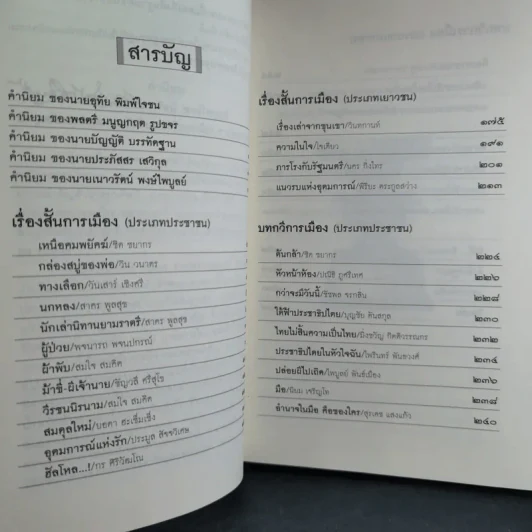 สารบัญ
คำนิยม ของนายอุทัย พิมพ์ใจชน
คำนิยม ของพลตรี มนูญกฤต รูปขจร
คำนิยม ของนายบัญญัติ บรรทัดฐาน
คำนิยม ของนายประภัสสร เสวิกุล
คำนิยม ของนายเนาวรัตน์ พงษ์ไพบูลย์
เรื่องสั้นการเมือง (ประเภทประชาชน)
เหนือคมพยัคฆ์/ชิด ชยากร
กล่องสบู่ของพ่อ/วิน วนาดร
ทางเลือก/วันเสาร์ เชิงศรี
นกหลง/สาคร พูลสุข
นักเล่านิทานยามราตรี/สาคร พูลสุข
ผู้ป่วย/พจนารถ พจนปกรณ์
ผ้าพับ/สมใจ สมคิด
ม้าขี่-ผีเจ้านาย/ชัญวลี ศรีสุโข
วีรชนนิรนาม/สมใจ สมคิด
สมดุลใหม่/
อุดมการณ์แห่งรัก/ประมูล
ฮัลโหล...!/กร ศิริวัฒโณ
เรื่องสั้นการเมือง (ประเภทเยาวชน)
เรื่องเล่าจากขุนเขา/วันดกานต์ ๑๗๕
ความในใจ/ใจเดียว ๑๙๑
การโรงกับรัฐมนตรี/นคร กิ่งไพร ๒๐๑
แนวรบแห่งอุดมการณ์/พีริยะ ตระกูลสว่าง ๒๑๓
บทกวีการเมือง (ประเภทประชาชน)
ต้นกล้า/ชิด ชยากร ๒๒๔
หัวหน้าห้อง/ปณิธิ ภูศรีเทศ ๒๒๖
กว่าจะมีวันนี้/ ๒๒๘
ใต้ฟ้าประชาธิปไตย/บุญชัย ตันสกุล ๒๓๐
ไทยไม่สิ้นความเป็นไทย/มิ่งขวัญ กิตติวรรณกร ๒๓๒
ประชาธิปไตยในหัวใจฉัน/ไพรินทร์ พันธวงศ์ ๒๓๔
ปล่อยผีไปเถิด/ไพบูลย์ พันธ์เมือง ๒๓๖
มือ/นิยม เจริญโท ๒๓๘
อำนาจในมือ คือของใคร/สุรเดช แสงแก้ว ๒๔๐